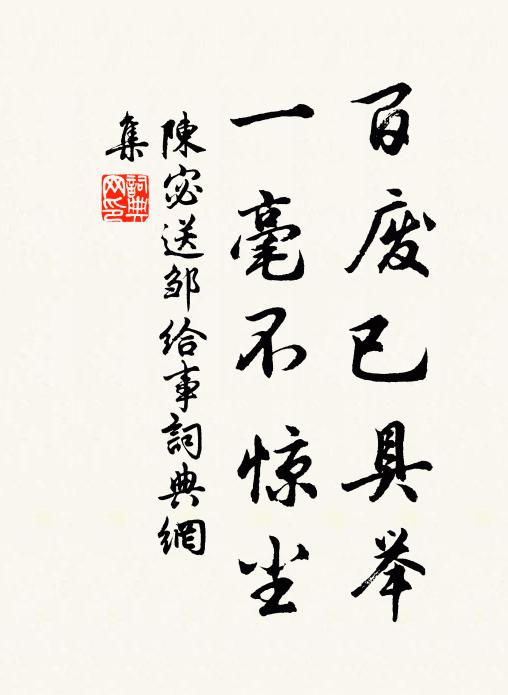 百废已具举
一毫不惊尘
陳宓送邹给事詞典網
集
詞典网印